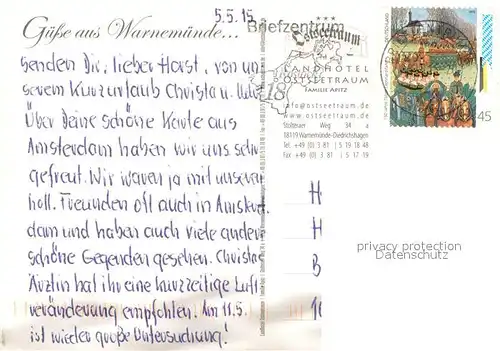 5.5.15
Grüße aus Warnemünde...
senden Dir, lieber Horst, von un-
serem Kurzurlaub Christa u.
Über Deine schöne Karte aus
Amsterdam haben wir uns sehr
gefreut. Wir waren ja mit unseren
holl. Freunden oft auch in Amster-
dam und haben auch viele andere
schöne Gegenden gesehen. Christas
Ärztin hat ihr eine kurzzeitige Luft-
veränderung empfohlen. Am 11.5.
ist wieder große Untersuchung!
Briefzentrum
18
Ostseetraum
LANDHOTEL
OSTSEETRAUM
FAMILIE ARTZ
info@ostseetraum.de
www.ostseetraum.de
Stolteraer Weg 34 a
18119 Warnemünde-Diedrichshagen
Tel. +49 (0) 3 81 | 5 19 18 48
Fax +49 (0) 3 81 | 5 17 19
45
H
H
B
privacy protection
Datenschutz